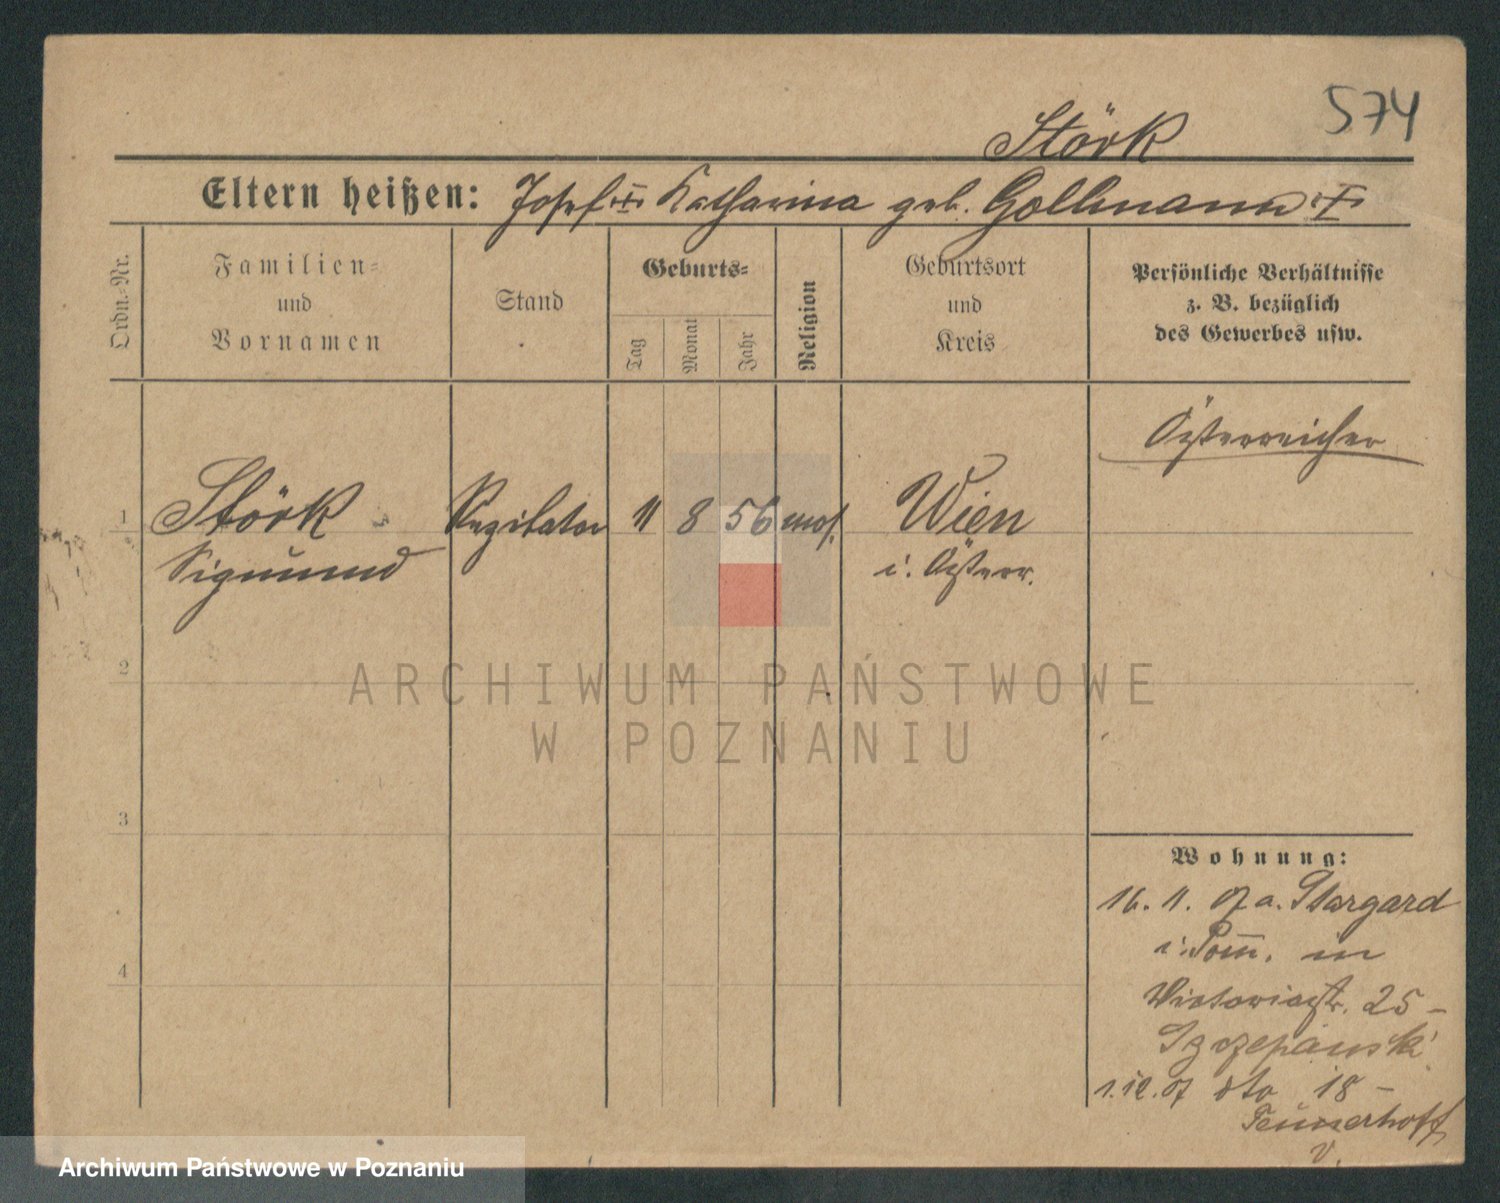 574
Störk
Eltern heißen: Josef Katharina geb. Gollmann
Ordn.-Nr.
Familien-
und
Vornamen
Stand
Geburts-
Tag
Monat
Jahr
Religion
Geburtsort
und
Kreis
Persönliche Verhältnisse
z. B. bezüglich
des Gewerbes usw.
Österreicher
1 Störk Rezitator 11 8 56 mos. Wien
Sigmund i. Österr.
2
ARCHIWUM PAŃSTWOWE
W POZNANIU
3
Wohnung:
16. 11. 07 a. Stargard
i. Pom. in
4
Victoriastr. 25 -
Szczepanski
1.12.07 dto 18 -
v.
Archiwum Państwowe w Poznaniu